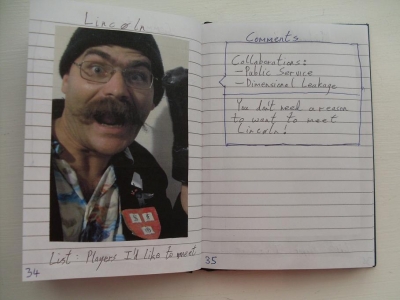 Lincoln
List: Players I'd like to meet
34
Comments
Collaborations:
- Public Service
- Dimensional Leakage
You don't need a reason
to want to meet
Lincoln!
35